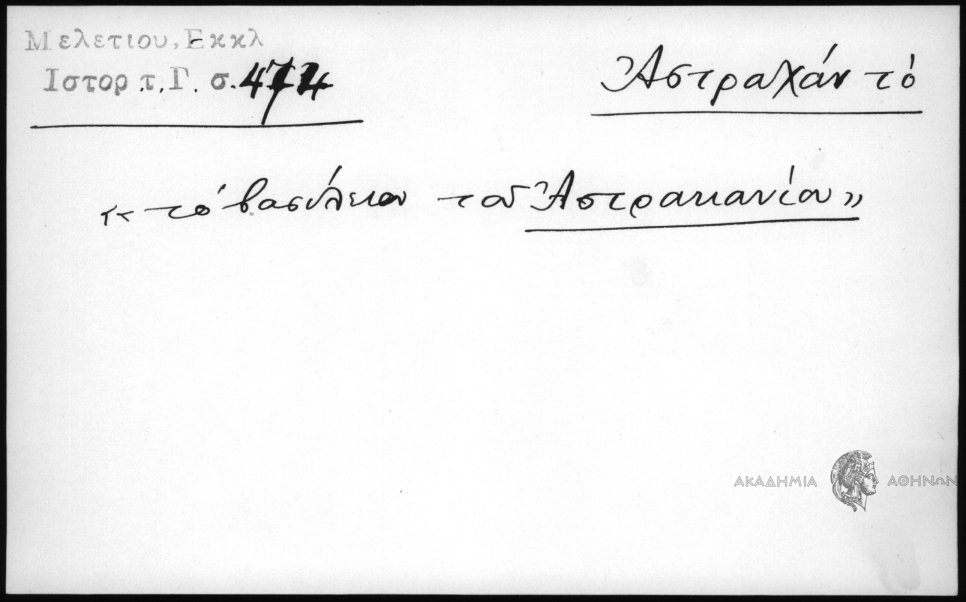 Μελετιου, Εκκλ
Ιστορ τ. Γ. σ. 474
Ἀστραχάν τὸ
«τὸ βασίλειον τοῦ Ἀστρακανίου»
ΑΚΑΔΗΜΙΑ ΑΘΗΝΩΝ